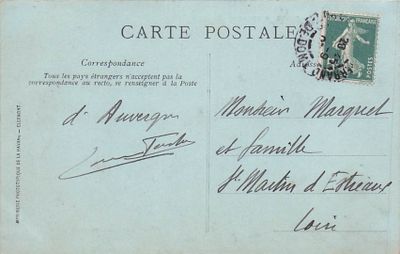 CARTE POSTALE
Correspondance
Tous les pays étrangers n'acceptent pas la
correspondance au recto, se renseigner à la Poste
d'Auvergne
Adresse
Monsieur Marquet
et famille
St Martin d'Estreaux
Loire
IMPRIMERIE PHOTOTYPIQUE DE LA HALLE - CLERMONT
FRANÇAISE
DE-DOME